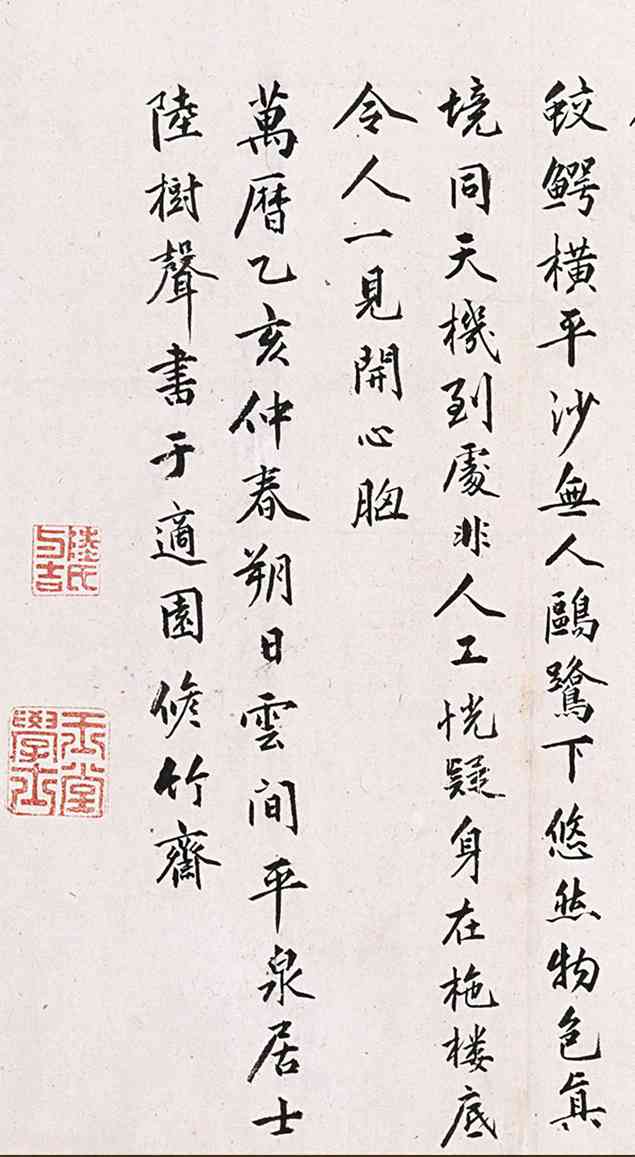 鮫鰐橫平沙無人鷗鷺下悠然物色真
境同天機到處非人工恍疑身在柂楼底
令人一見開心胸
萬曆乙亥仲春朔日雲间平泉居士
陸樹聲書于適園脩竹齋
陸氏与吉
玉堂學士